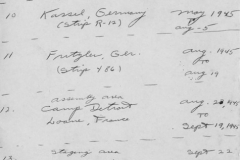 10 Kassel, Germany May 1945
(Strip R-12) TO
aug-5
11 Fritzlar, Ger. aug. 1945
(Strip Y86) TO
aug 29
assembly area
12. Camp Detroit aug.
Laone, France TO
Sept 19, 1945
13 Staging area Sept 22